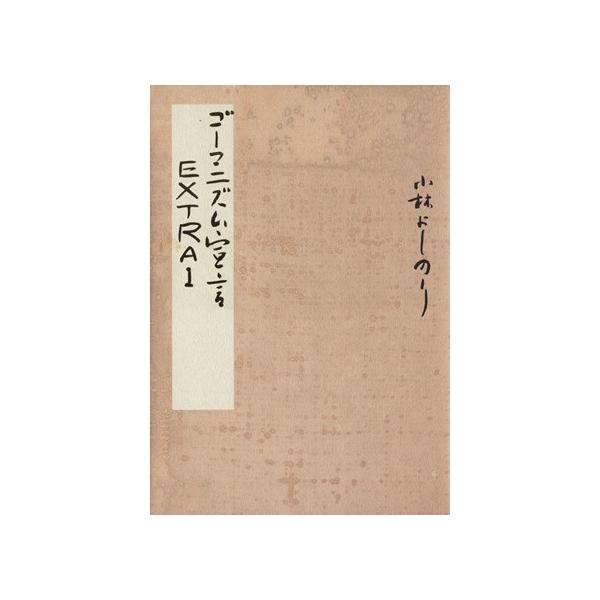 小林よしのり
ゴーマニズム宣言
EXTRA1